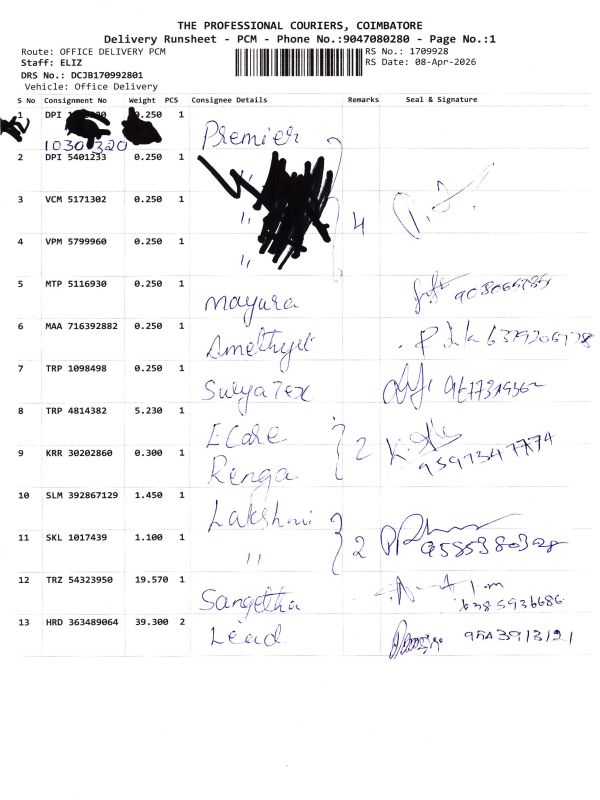 THE PROFESSIONAL COURIERS, COIMBATORE
Delivery Runsheet - PCM - Phone No.:9047080280 - Page No.:1
Route: OFFICE DELIVERY PCM
Staff: ELIZ
DRS No.: DCJB170992801
Vehicle: Office Delivery
RS No.: 1709928
RS Date: 08-Apr-2026
S No Consignment No Weight PCS Consignee Details Remarks Seal & Signature
1 DPI 0.250 1 Premier
1030 320
2 DPI 5401233 0.250 1 "
3 VCM 5171302 0.250 1 " 4
4 VPM 5799960 0.250 1 "
5 MTP 5116930 0.250 1 Mayura
6 MAA 716392882 0.250 1 Amethyst
7 TRP 1098498 0.250 1 Surya Tex
8 TRP 4814382 5.230 1 E Care
9 KRR 30202860 0.300 1 Renga 2 9597347774
10 SLM 392867129 1.450 1 Lakshmi
11 SKL 1017439 1.100 1 " 2
12 TRZ 54323950 19.570 1 Sangetha 6385936686
13 HRD 363489064 39.300 2 Lead 9543913121